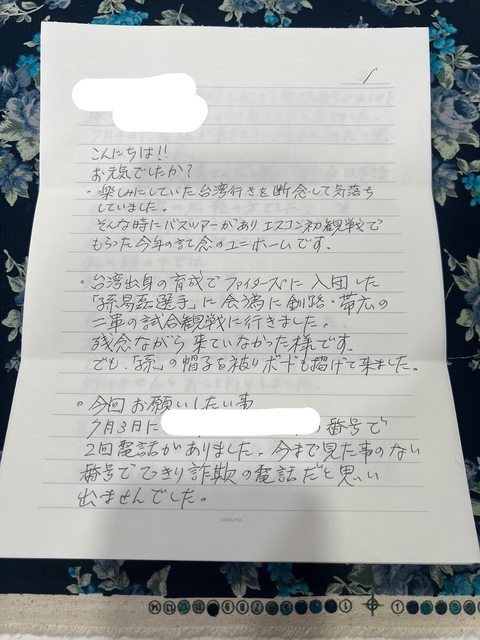 1
こんにちは!!
お元気でしたか?
・楽しみにしていた台湾行きを断念して気落ち
していました。
そんな時にバスツアーがありエスコン初観戦で
もらった今年の記念のユニホームです。
・台湾出身の育成でファイターズに入団した
「孫易磊選手」に会う為に釧路・帯広の
二軍の試合観戦に行きました。
残念ながら来ていなかった様です。
でも「孫」の帽子を被りボードも掲げて来ました。
・今回お願いしたい事
7月3日に の番号で
2回電話がありました。今まで見た事のない
番号でてっきり詐欺の電話だと思い
出ませんでした。
KOKUYO